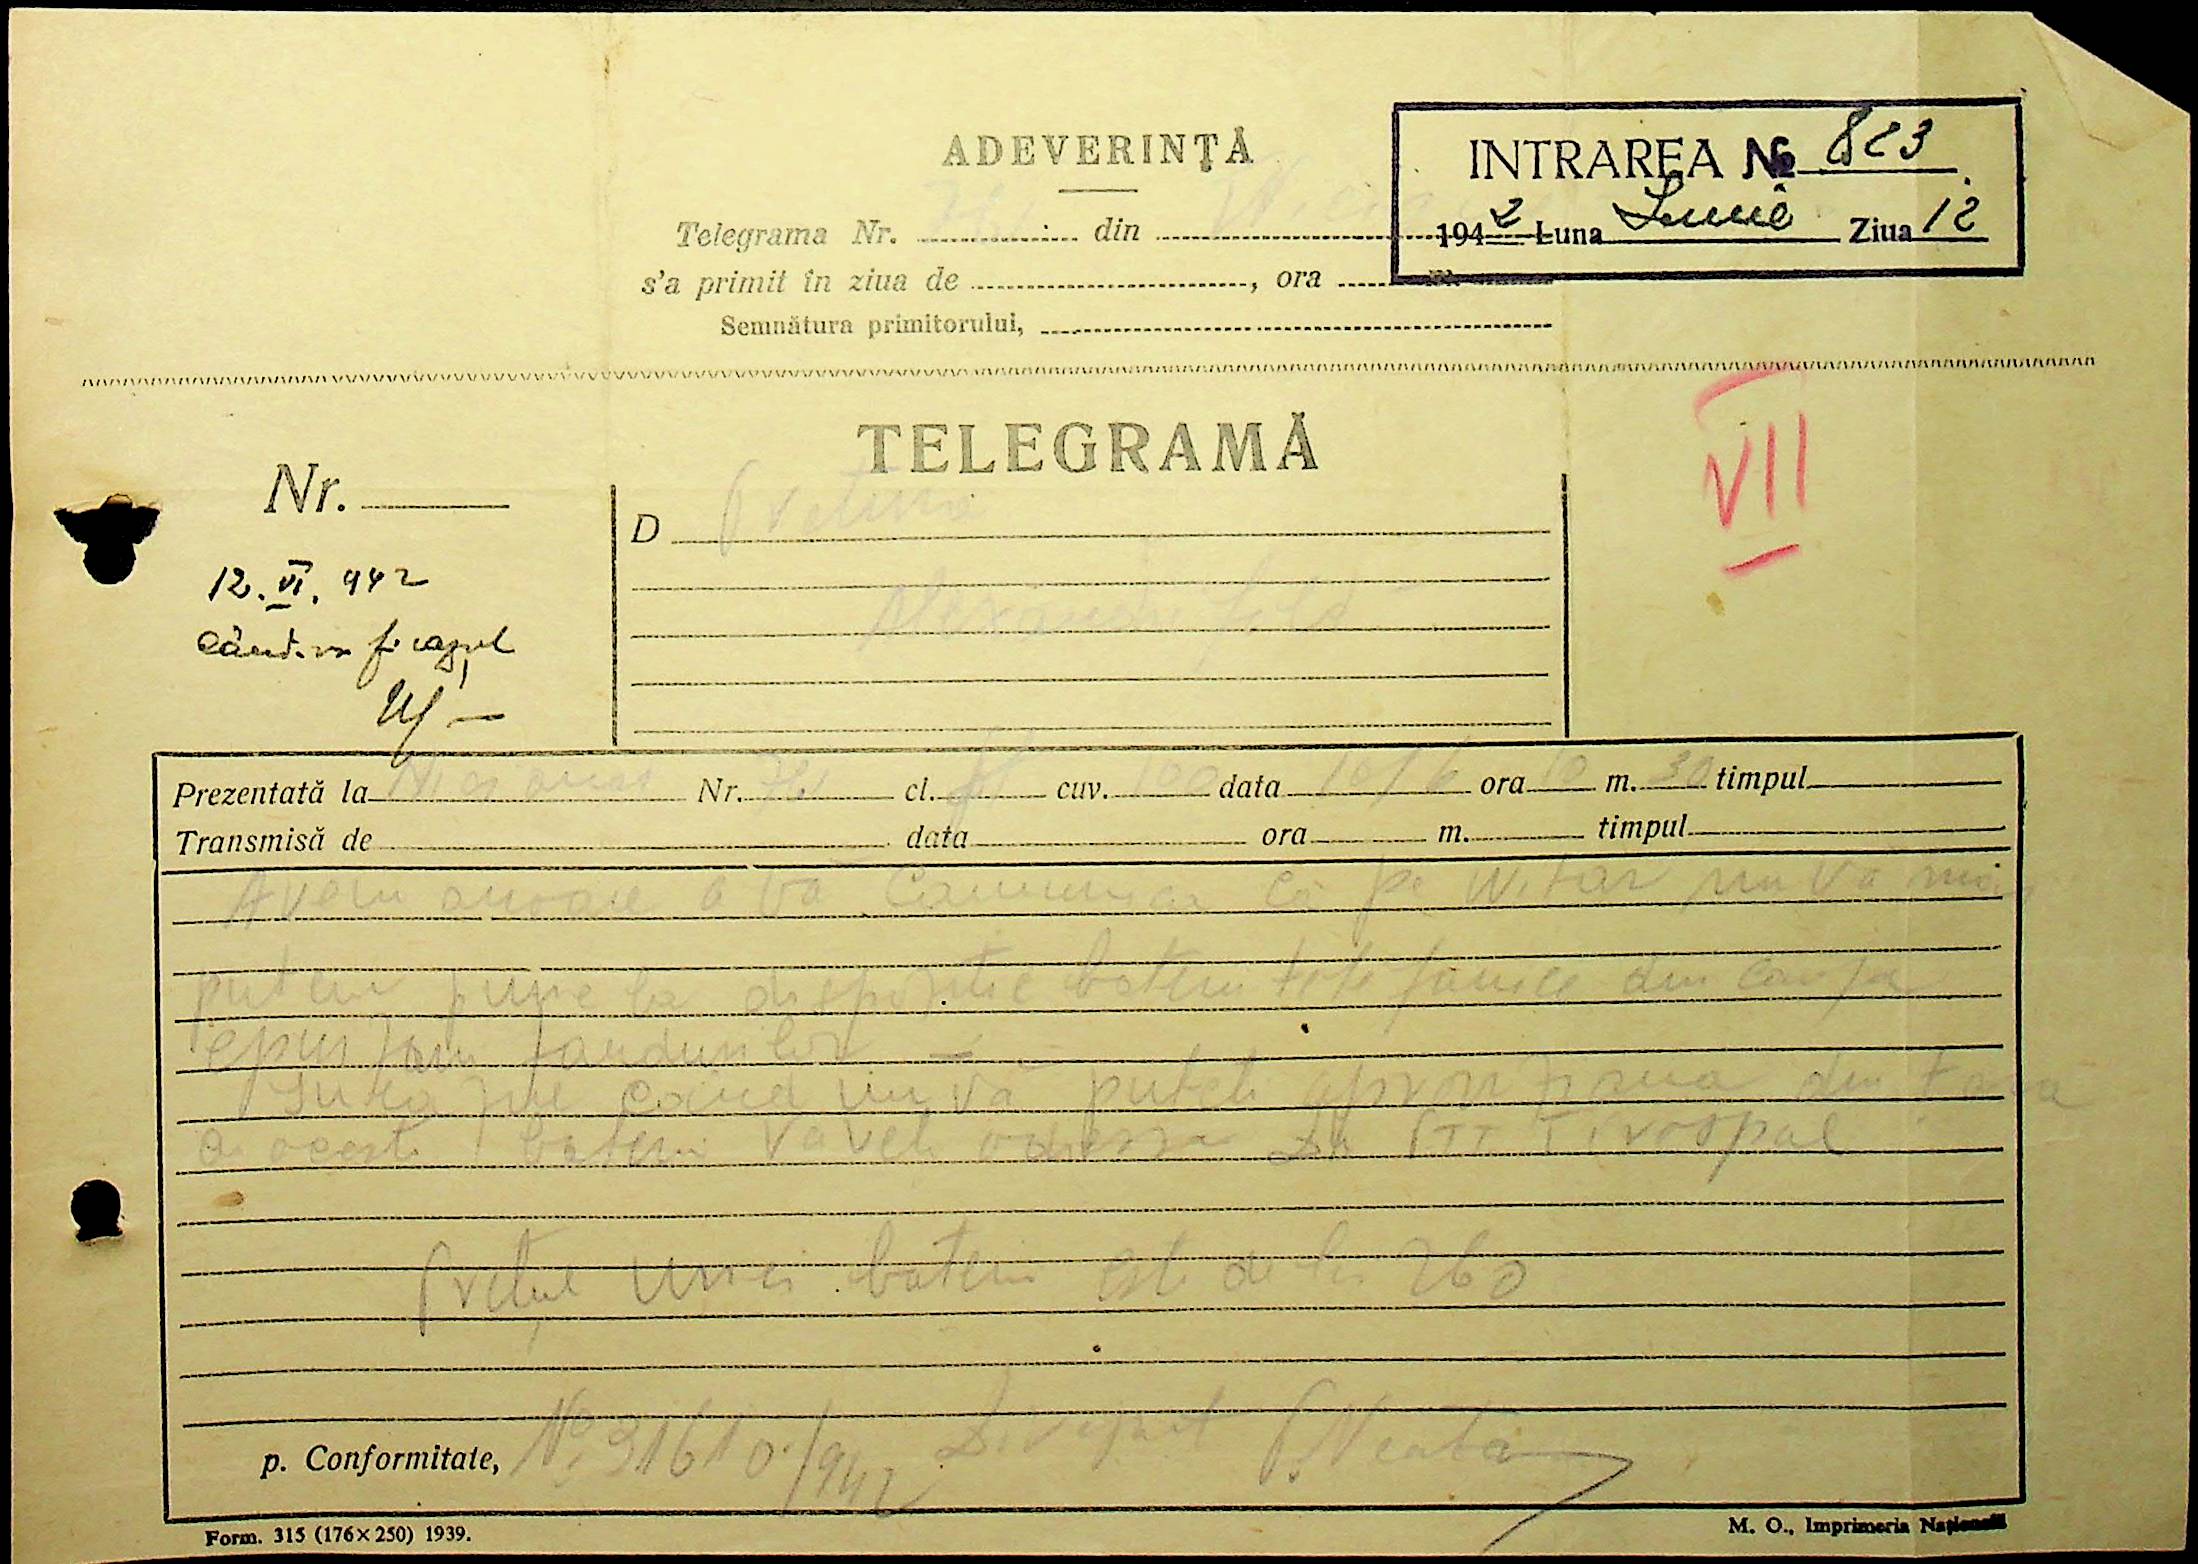 ADEVERINŢĂ
INTRAREA № 823
1942 Luna Iunie Ziua 12
Telegrama Nr. din
s'a primit în ziua de , ora m.
Semnătura primitorului,
TELEGRAMĂ
VII
Nr.
D Pretura
12.VI.942
când va fi cazul
Prezentată la Nr. cl. cuv. 100 data 10/6 ora 10 m. 30 timpul
Transmisă de data ora m. timpul
Avem onoare a vă comunica că pe viitor nu vă mai
putem pune la dispoziție baterii telefonice din cauza
epuizării fondurilor
când nu vă puteți aproviziona din țară
baterii vă veți adresa PTT Tiraspol
Prețul unei baterii este de lei 260
p. Conformitate, No 31610/942
Form. 315 (176×250) 1939.
M. O., Imprimeria Naţională